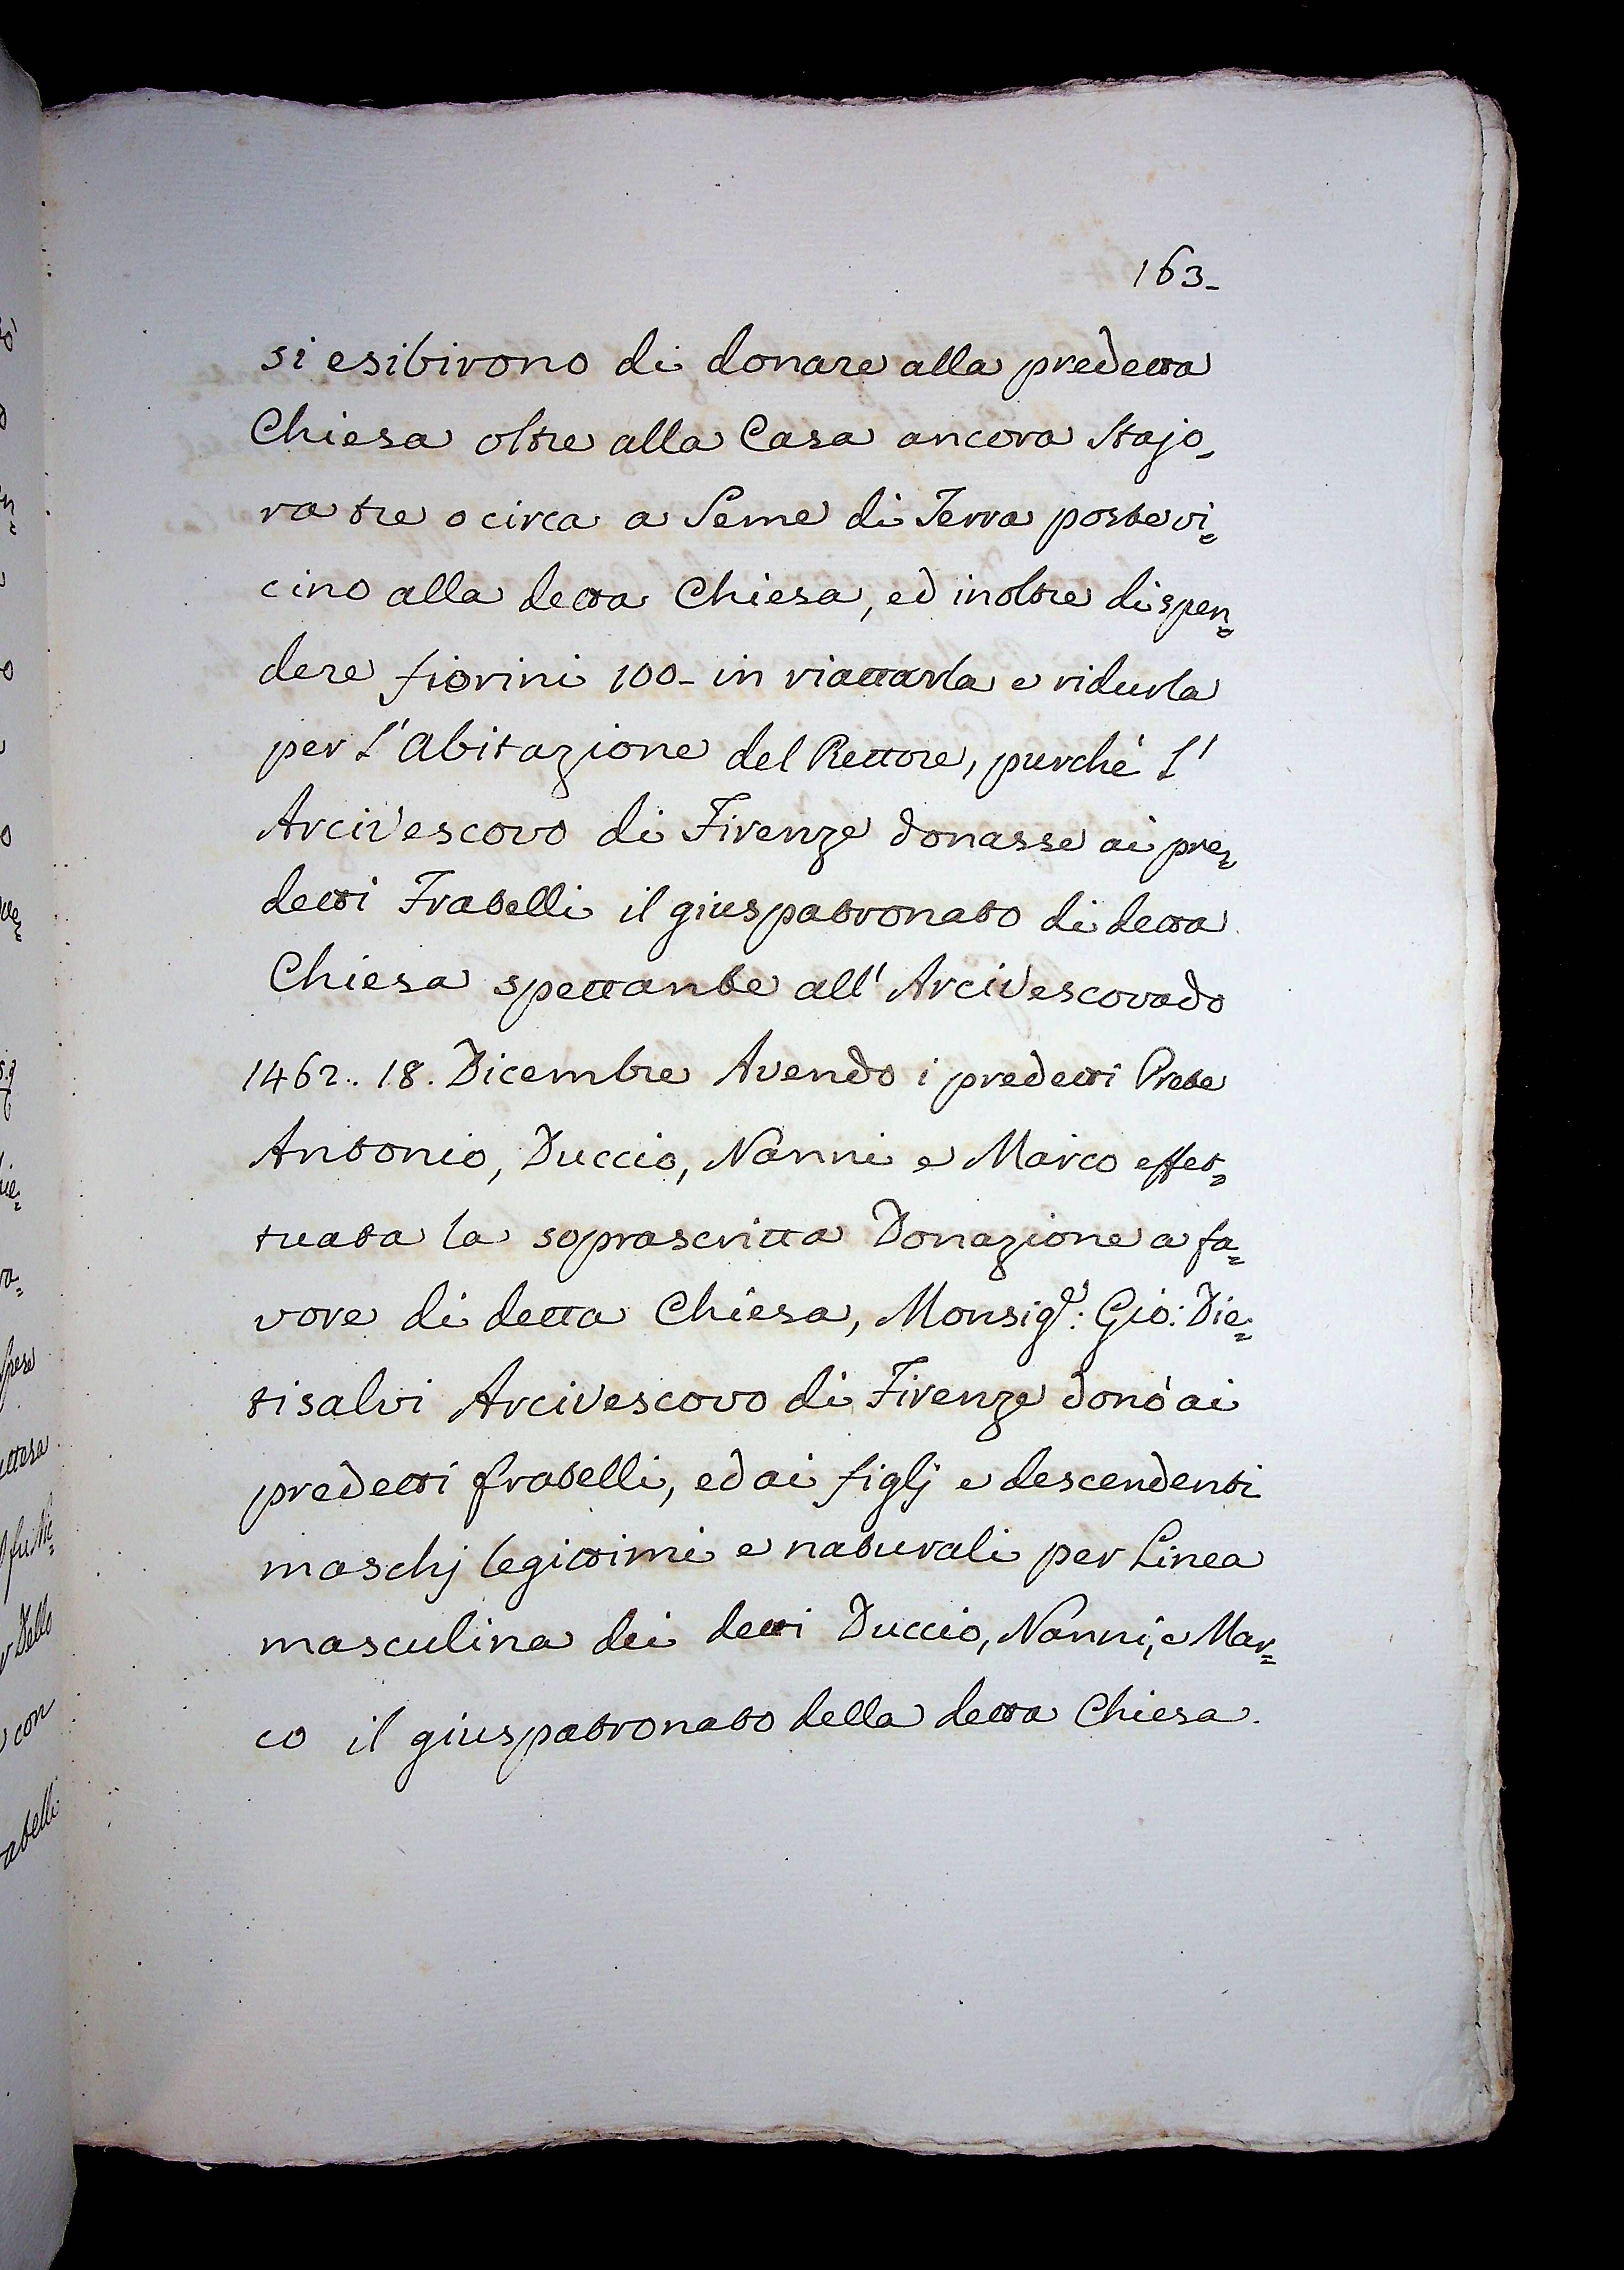 163-
si esibirono di donare alla predetta
Chiesa oltre alla Casa ancora Stajo-
ra tre o circa a Seme di Terra poste vi=
cino alla detta Chiesa, ed inoltre dispen=
dere fiorini 100- in riattarla e ridurla
per l'Abitazione del Rettore, purchè l'
Arcivescovo di Firenze donasse ai pre=
detti Fratelli il giuspatronato di detta
Chiesa spettante all'Arcivescovado
1462.. 18. Dicembre Avendo i predetti Prete
Antonio, Duccio, Nanni e Marco effet=
tuata la soprascritta Donazione a fa=
vore di detta Chiesa, Monsig.r: Gio: Die=
tisalvi Arcivescovo di Firenze donò ai
predetti fratelli, ed ai figlj e descendenti
maschj legittimi e naturali per Linea
masculina dei detti Duccio, Nanni, e Mar=
co il giuspatronato della detta Chiesa.